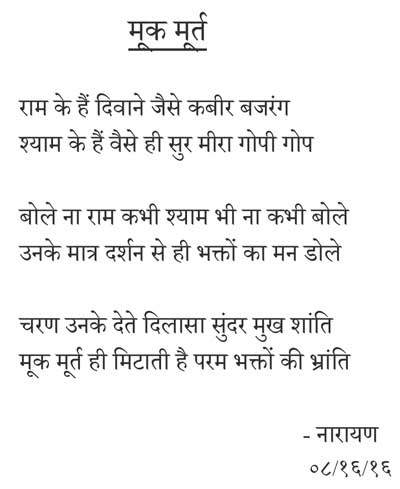 मूक मूर्त
राम के हैं दिवाने जैसे कबीर बजरंग
श्याम के हैं वैसे ही सुर मीरा गोपी गोप
बोले ना राम कभी श्याम भी ना कभी बोले
उनके मात्र दर्शन से ही भक्तों का मन डोले
चरण उनके देते दिलासा सुंदर मुख शांति
मूक मूर्त ही मिटाती है परम भक्तों की भ्रांति
- नारायण
०८/१६/१६